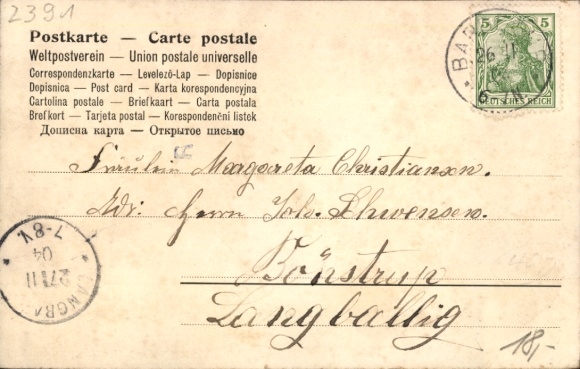 2391
Postkarte — Carte postale
Weltpostverein — Union postale universelle
Correspondenzkarte — Levelezö-Lap — Dopisnice
Dopisnica — Post card — Karta korespondencyjna
Cartolina postale — Briefkaart — Carta postala
Brefkort — Tarjeta postal — Korespondenčni listek
Дописна карта — Открытое письмо
5 5
DEUTSCHES REICH
Fräulein Margareta Christiansen.
Adr. Herrn Joh. Schwensen.
Bönstrup
Langballig
LANGBA
27 11
04
7-8V.
18,-